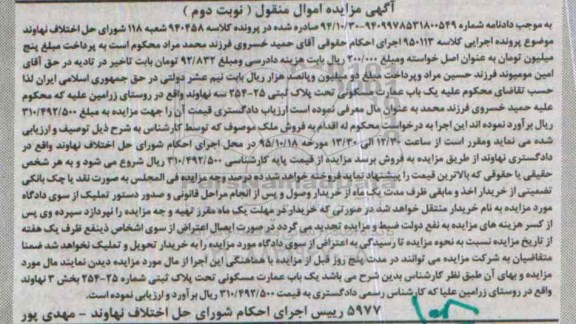 آگهی مزایده اموال منقول ( نوبت دوم )
به موجب دادنامه شماره ۹۴/۱۰/۳۰-۹۴۰۹۹۷۸۵۳۱۸۰۰۵۴۹ صادره شده در پرونده کلاسه ۹۴۰۴۵۸ شعبه ۱۱۸ شورای حل اختلاف نهاوند
موضوع پرونده اجرایی کلاسه ۹۵۰۱۱۳ اجرای احکام حقوقی آقای حمید خسروی فرزند محمد مراد محکوم است به پرداخت مبلغ پنج
میلیون تومان به عنوان اصل خواسته ومبلغ ۳۰۰/۰۰۰ ریال بابت هزینه دادرسی ومبلغ ۹۲/۸۳۲ تومان بابت تاخیر در تادیه در حق آقای
امین مومیوند فرزند حسین مراد وپرداخت مبلغ دو میلیون وپانصد هزار ریال بابت نیم عشر دولتی در حق جمهوری اسلامی ایران لذا
حسب تقاضای محکوم علیه یک باب عمارت مسکونی تحت پلاک ثبتی ۲۵-۲۵۴ سه نهاوند واقع در روستای زرامین علیه که محکوم
علیه حمید خسروی فرزند محمد به عنوان مال معرفی نموده است ارزیاب دادگستری قیمت آن را جهت مزایده به مبلغ ۳۱۰/۴۹۲/۵۰۰
ریال برآورد نموده اند این اجرا به درخواست محکوم له اقدام به فروش ملک موصوف که توسط کارشناس به شرح ذیل توصیف و ارزیابی
شده می نماید ومقرر است از ساعت ۱۲/۳۰ الی ۱۳/۳۰ مورخه ۹۵/۱۰/۱۸ در محل اجرای احکام شورای حل اختلاف نهاوند واقع در
دادگستری نهاوند از طریق مزایده به فروش برسد مزایده از قیمت پایه کارشناسی ۳۱۰/۴۹۲/۵۰۰ ریال شروع می شود و به هر شخص
حقیقی یا حقوقی که بالاترین قیمت را پیشنهاد نماید فروخته خواهد شد ده درصد وجه مزایده فی المجلس به صورت نقد یا چک بانکی
تضمینی از خریدار اخذ و مابقی ظرف مدت یک ماه از خریدار وصول و پس از انجام مراحل قانونی و صدور دستور تملیک از سوی دادگاه
مورد مزایده به نام خریدار منتقل خواهد شد در صورتی که خریدار در مهلت یک ماه مقرر تهیه و وجه مزایده را نپردازد سپرده وی پس
از کسر هزینه های مزایده به نفع دولت ضبط و مزایده تجدید می گردد در صورت ایصال اعتراض از سوی اشخاص ذینفع ظرف یک هفته
از تاریخ مزایده نسبت به نحوه مزایده تا رسیدگی به اعتراض از سوی دادگاه مورد مزایده را به خریدار تحویل و تملیک نخواهد شد ضمنا
متقاضیان به شرکت مزایده می توانند در مدت پنج روز قبل از مزایده با هماهنگی این اجرا از مال مورد مزایده دیدن نمایند مال مورد
مزایده و بهای آن طبق نظر کارشناس بدین شرح می باشد یک باب عمارت مسکونی تحت پلاک ثبتی شماره ۲۵-۲۵۴ بخش ۳ نهاوند
واقع در روستای زرامین علیا که کارشناس رسمی دادگستری به قیمت ۳۱۰/۴۹۲/۵۰۰ ریال برآورد و ارزیابی نموده است.
۵۹۷۷ رییس اجرای احکام شورای حل اختلاف نهاوند - مهدی پور